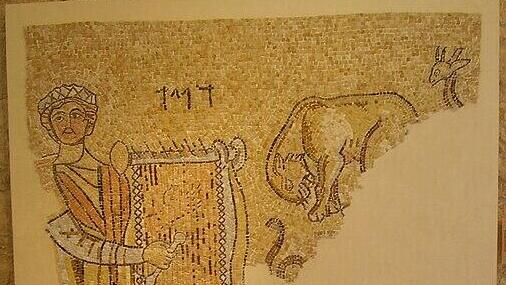 דויד